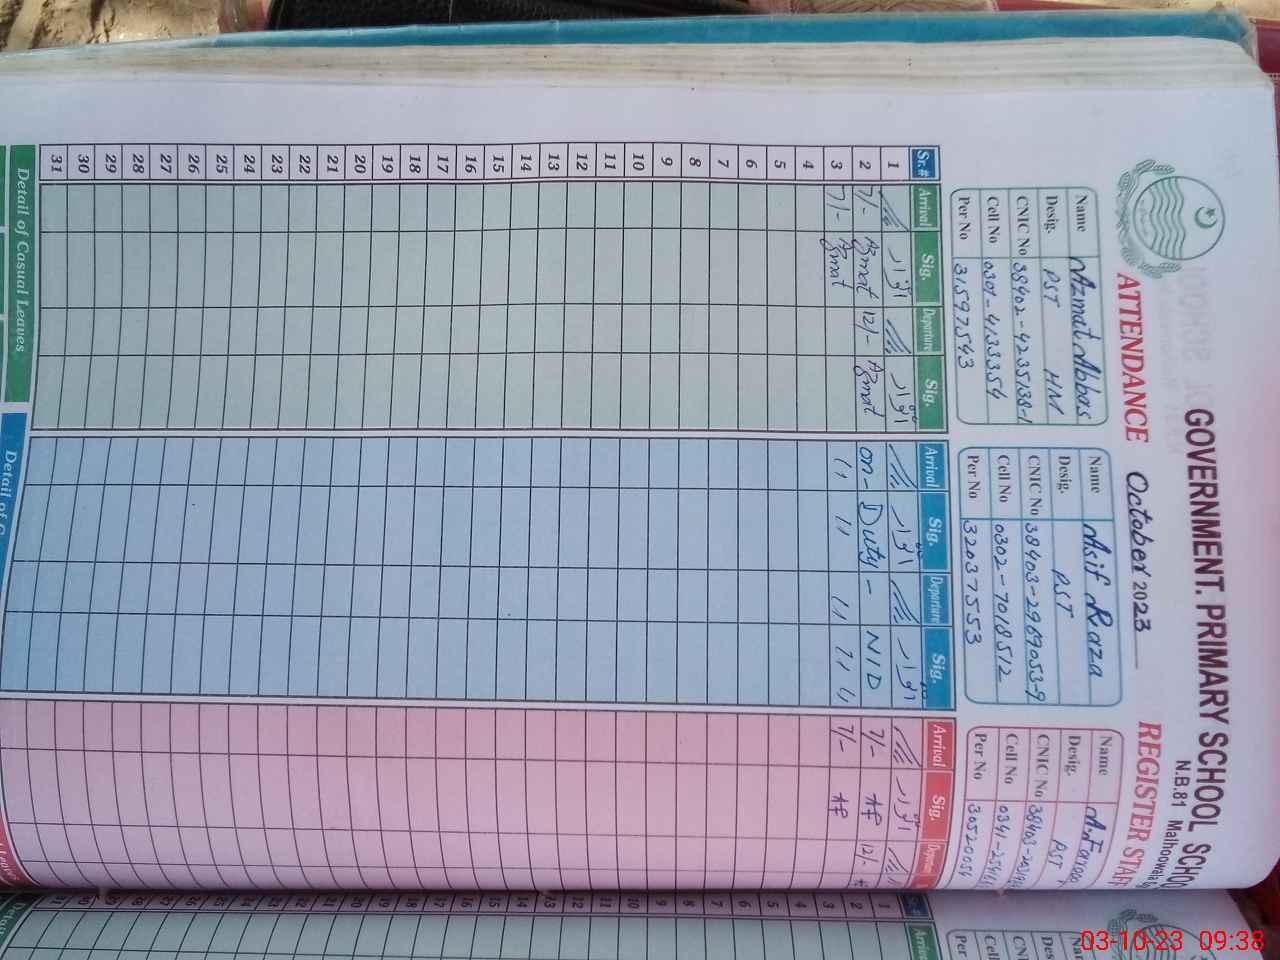 GOVERNMENT. PRIMARY SCHOOL SCHOO
N.B.81 Malhoowala
ATTENDANCE October 2023 REGISTER STAF
Name Azmat Abbas
Desig. PST HM
CNIC No 38402-4235138-1
Cell No 0301-4133354
Per No 31597543
Name Asif Raza
Desig. PST
CNIC No 38403-2969053-9
Cell No 0302-7018512
Per No 32037553
Name A.Farooq
Desig. PST
CNIC No 38403-
Cell No 0341-
Per No 30520054
Sr.# Arrival Sig. Departure Sig. Arrival Sig. Departure Sig. Arrival Sig. Departure
1 اتوار اتوار اتوار اتوار اتوار
2 7/- Azmat 12/- Azmat on-Duty- NID 7/- AF 12/-
3 7/- Azmat 11 11 11 11 11 7/- AF
4
5
6
7
8
9
10
11
12
13
14
15
16
17
18
19
20
21
22
23
24
25
26
27
28
29
30
31
Detail of Casual Leaves
Detail of C
Leaves
Name
Cell
Per
Arrival
1
2
3
4
5
6
7
8
9
10
11
12
13
14
15
16
17
18
19
20
21
22
23
24
25
26
27
28
29
30
31
Detail
03-10-23 09:38